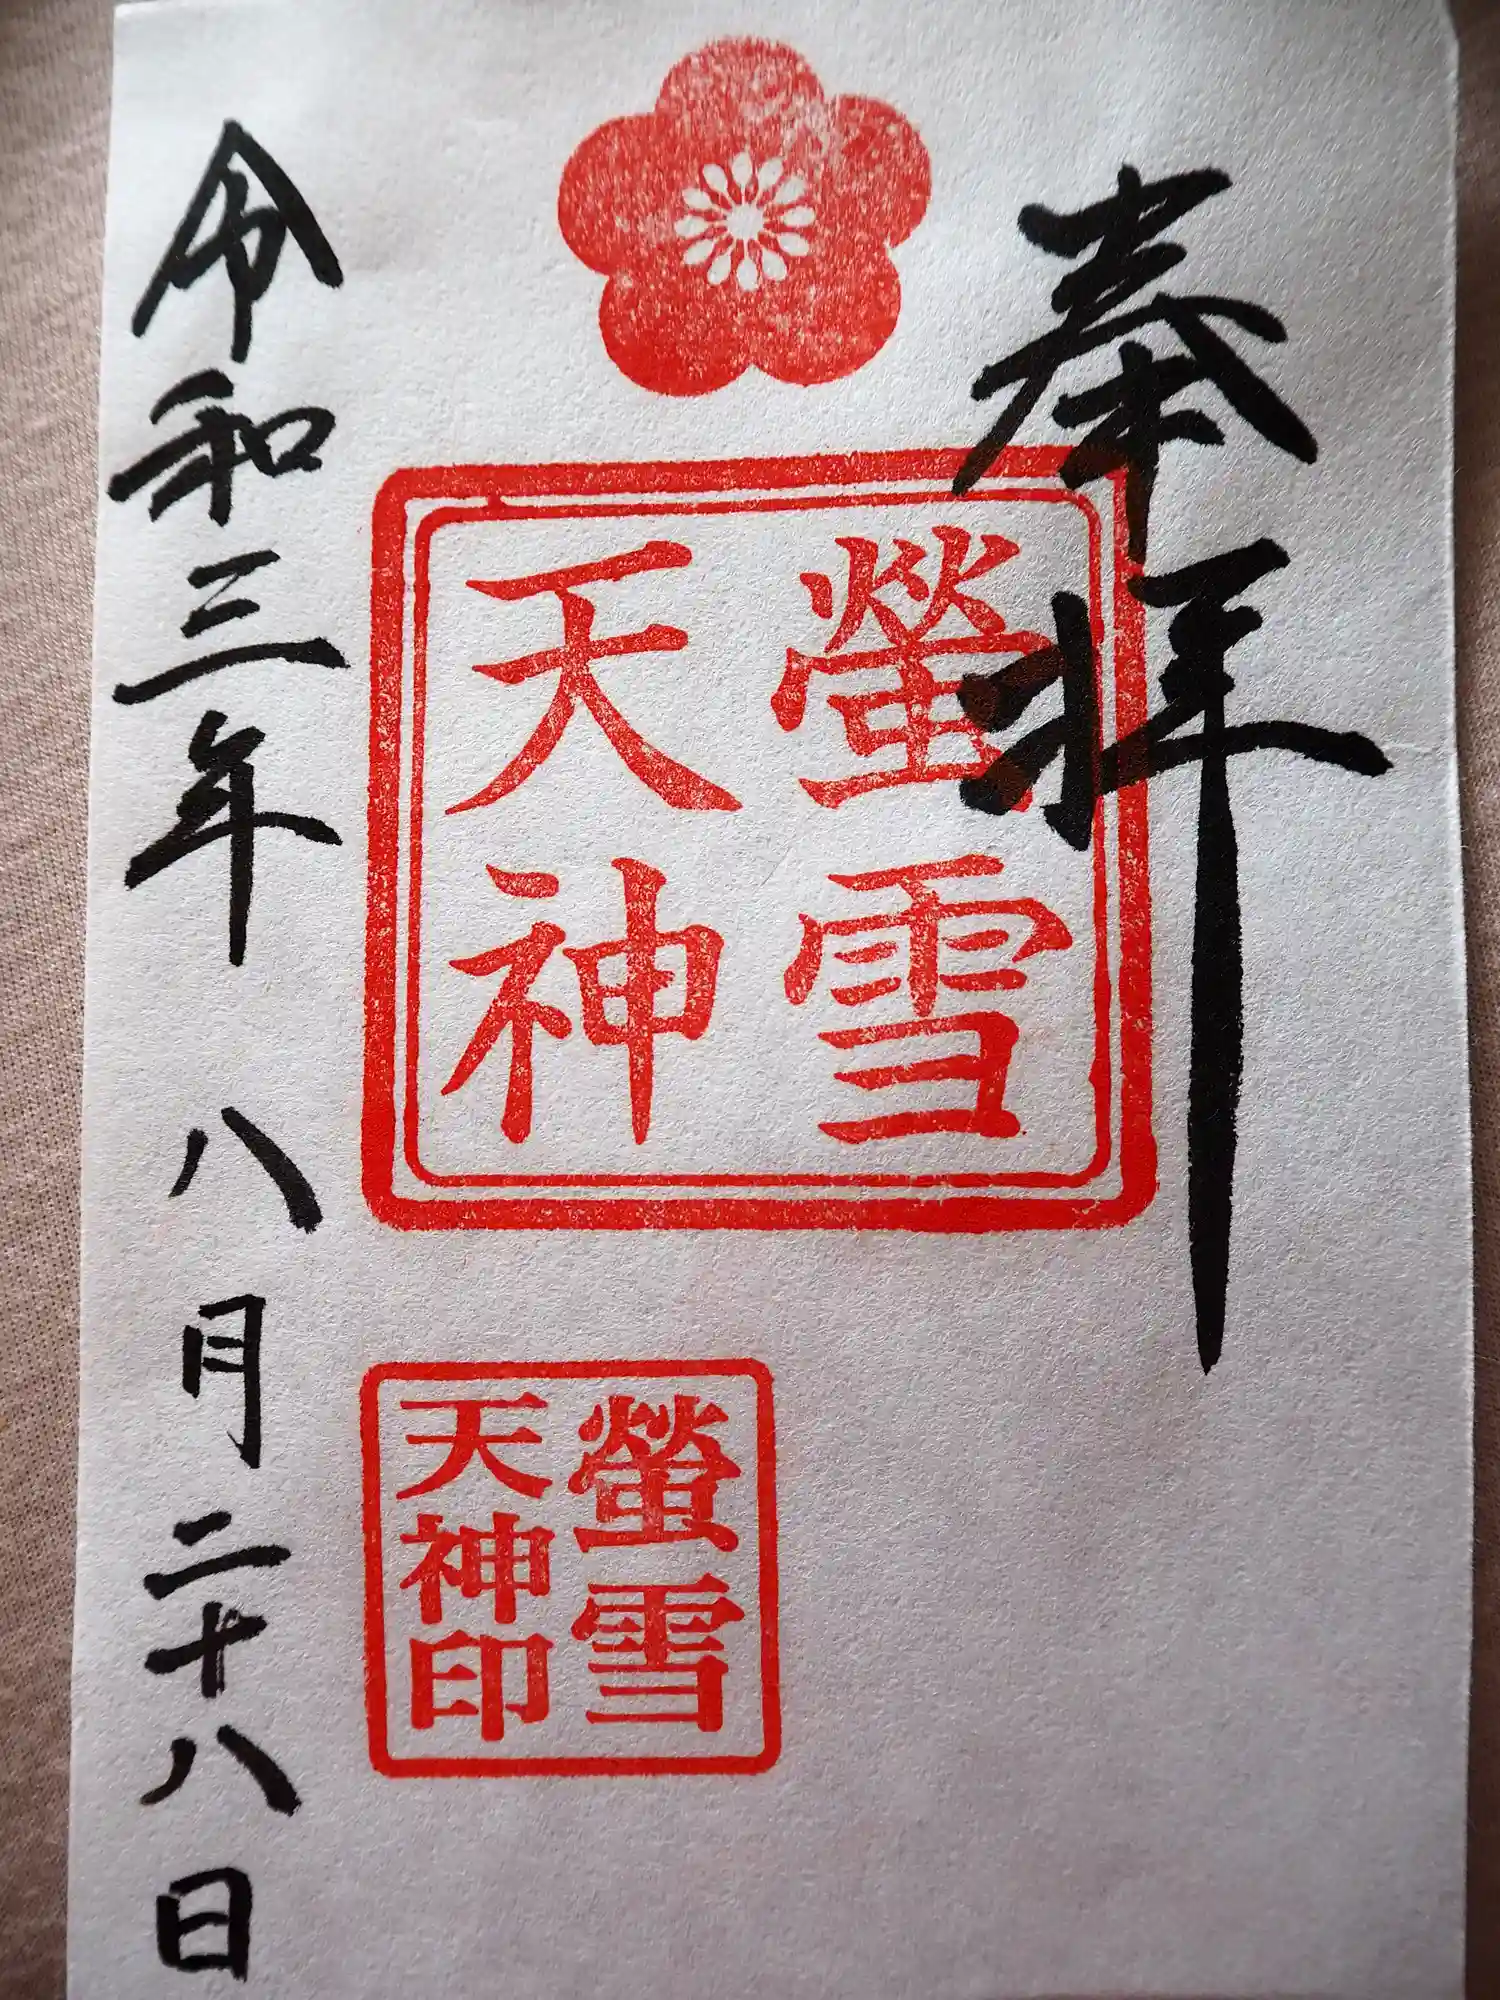 奉拝
螢雪
天神
螢雪
天神印
令和三年八月二十八日